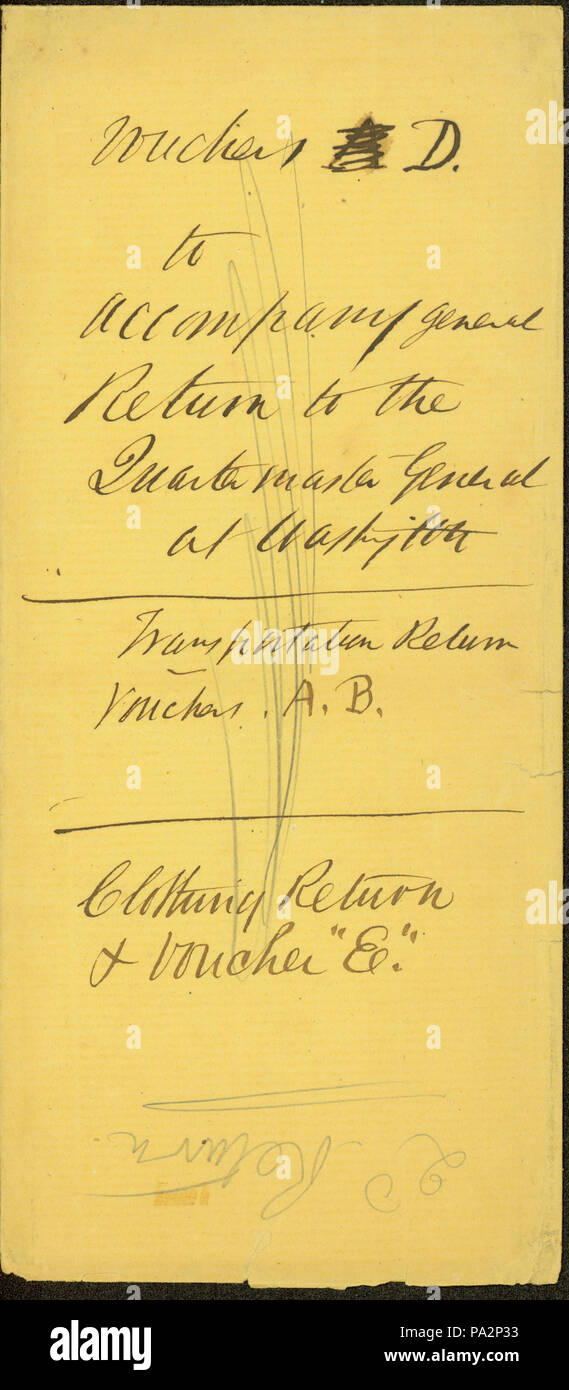 Vouchers D.
to
accompany general
Return to the
Quartermaster General
at Washington
Transportation Return
Vouchers. A. B.
Clothing Return
& Voucher "E".
Return
alamy
Image ID: PA2P33
www.alamy.com